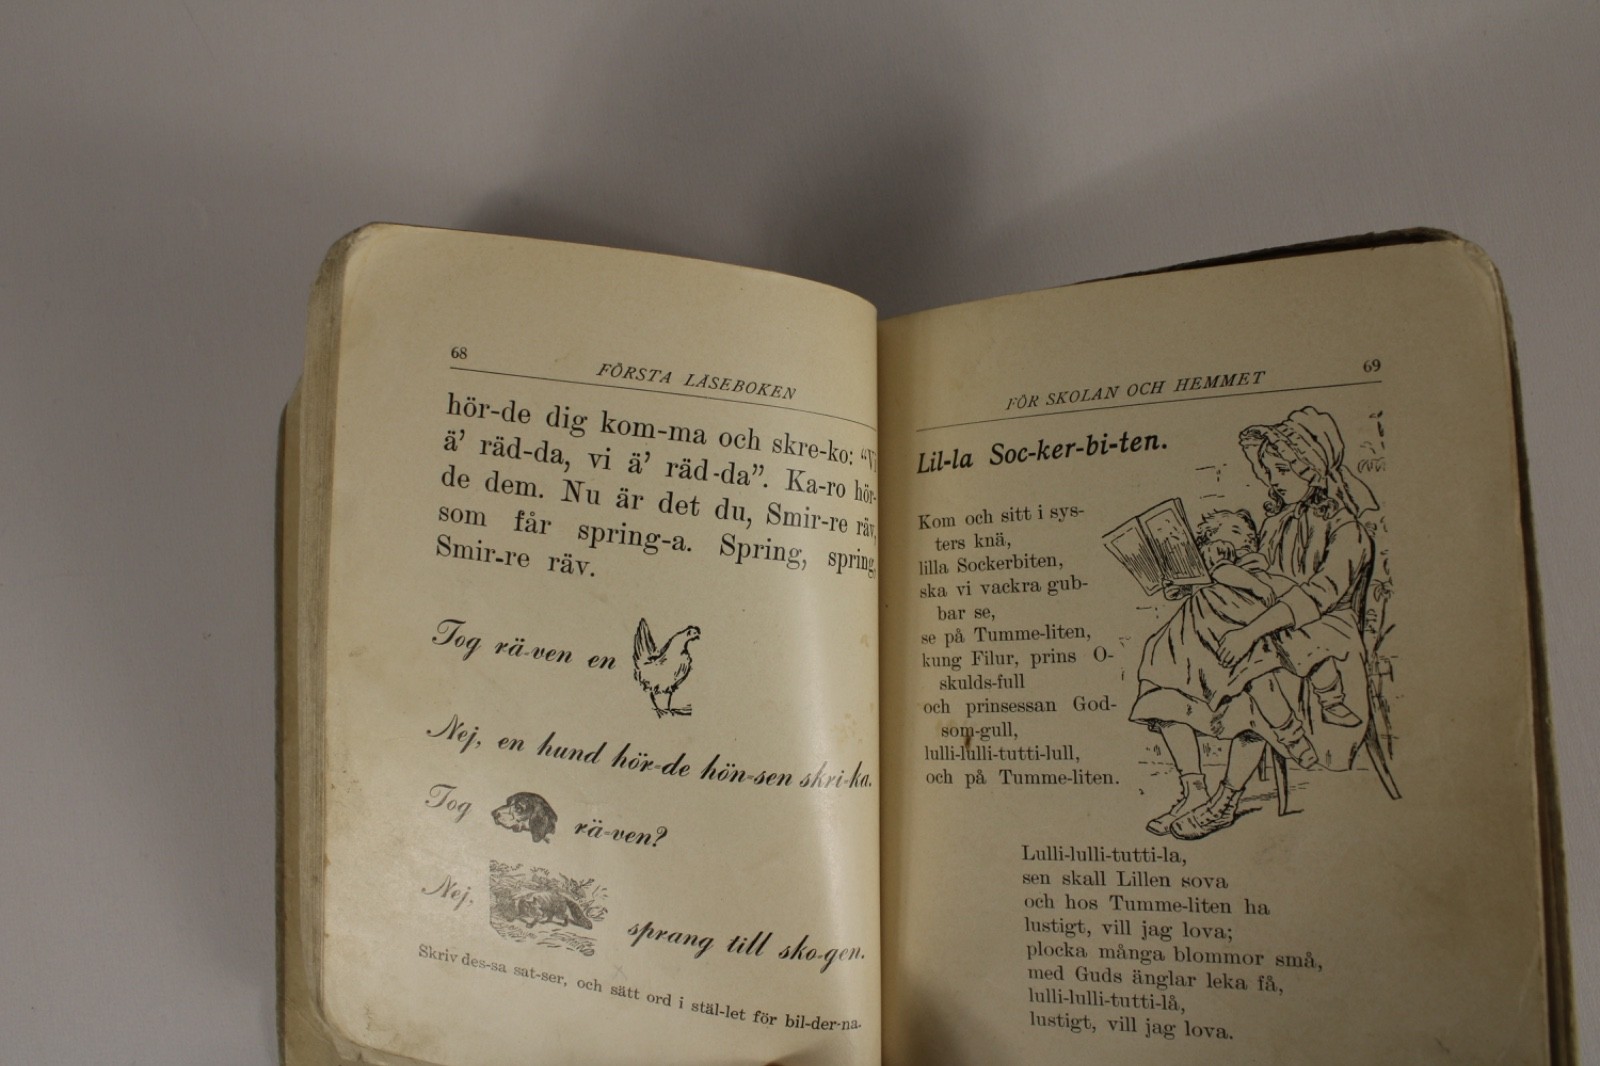 68
FÖRSTA LÄSEBOKEN
hör-de dig kom-ma och skre-ko: “Vi
ä’ räd-da, vi ä’ räd-da”. Ka-ro hör-
de dem. Nu är det du, Smir-re räv,
som får spring-a. Spring, spring,
Smir-re räv.
Tog rä-ven en
Nej, en hund hör-de hön-sen skri-ka.
Tog rä-ven?
Nej, sprang till sko-gen.
Skriv des-sa sat-ser, och sätt ord i stäl-let för bil-der-na.
FÖR SKOLAN OCH HEMMET
69
Lil-la Soc-ker-bi-ten.
Kom och sitt i sys-
ters knä,
lilla Sockerbiten,
ska vi vackra gub-
bar se,
se på Tumme-liten,
kung Filur, prins O-
skulds-full
och prinsessan God-
som-gull,
lulli-lulli-tutti-lull,
och på Tumme-liten.
Lulli-lulli-tutti-la,
sen skall Lillen sova
och hos Tumme-liten ha
lustigt, vill jag lova;
plocka många blommor små,
med Guds änglar leka få,
lulli-lulli-tutti-lå,
lustigt, vill jag lova.